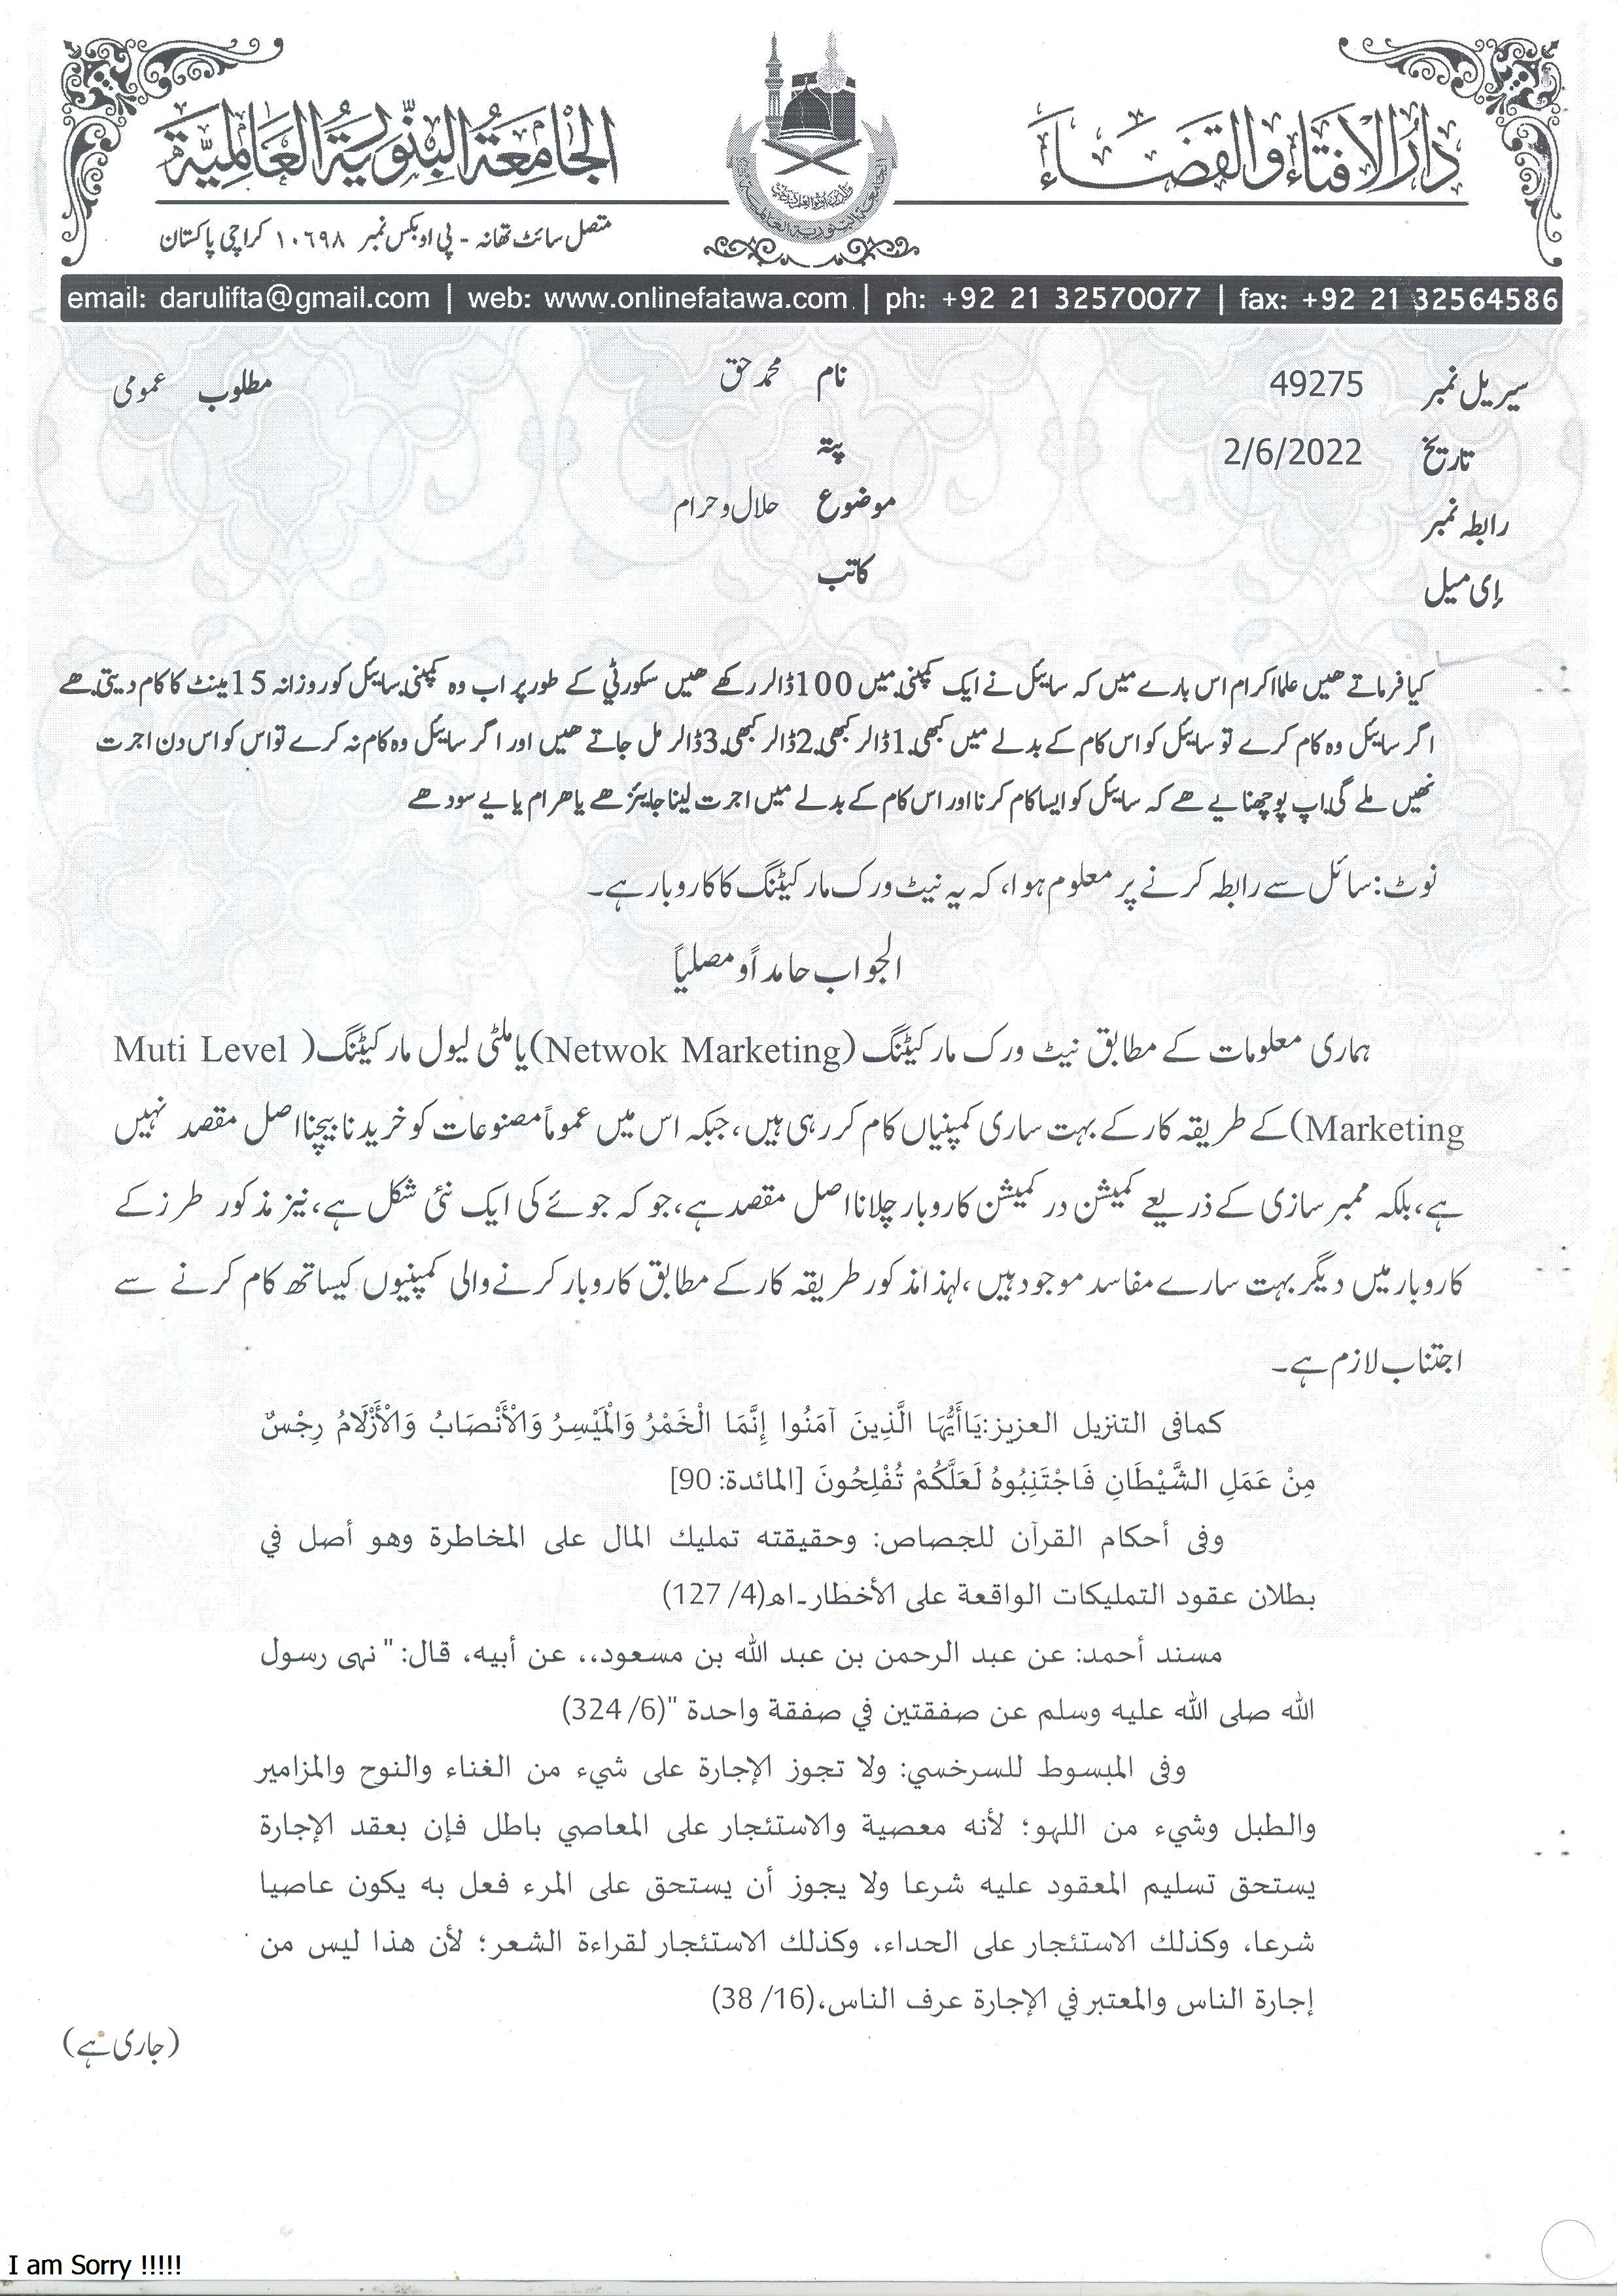 دارُ الافتاء والقضاء
الجامعۃ البنوریۃ العالمیۃ
متصل سائٹ تھانہ - پی او بکس نمبر ١٠٦٩٨ کراچی پاکستان
email: darulifta@gmail.com | web: www.onlinefatawa.com | ph: +92 21 32570077 | fax: +92 21 32564586
سیریل نمبر 49275 نام محمد حق مطلوب عمومی
تاریخ 2/6/2022 پتہ
رابطہ نمبر موضوع حلال وحرام
إی میل کاتب
کیا فرماتے ھیں علما اکرام اس بارے میں کہ سایئل نے ایک کمپنی میں 100 ڈالر رکھے ھیں سکورٹي کے طور پر اب وہ کمپنی سایئل کو روزانہ 15 مینٹ کا کام دیتی ھے
اگر سایئل وہ کام کرے تو سایئل کو اس کام کے بدلے میں کبھی 1 ڈالر کبھی 2 ڈالر کبھی 3 ڈالر مل جاتے ھیں اور اگر سایئل وہ کام نہ کرے تو اس کو اس دن اجرت
نھیں ملے گی اپ پوچھنا یے ھے کہ سایئل کو ایسا کام کرنا اور اس کام کے بدلے میں اجرت لینا جایئز ھے یا ھرام یا یے سود ھے
نوٹ: سائل سے رابطہ کرنے پر معلوم ہوا، کہ یہ نیٹ ورک مارکیٹنگ کا کاروبار ہے۔
الجواب حامداً و مصلیاً
ہماری معلومات کے مطابق نیٹ ورک مارکیٹنگ (Netwok Marketing) یا ملٹی لیول مارکیٹنگ (Muti Level
Marketing) کے طریقہ کار کے بہت ساری کمپنیاں کام کر رہی ہیں، جبکہ اس میں عموماً مصنوعات کو خریدنا بیچنا اصل مقصد نہیں
ہے، بلکہ ممبر سازی کے ذریعے کمیشن در کمیشن کاروبار چلانا اصل مقصد ہے، جو کہ جوئے کی ایک نئی شکل ہے، نیز مذکور طرز کے
کاروبار میں دیگر بہت سارے مفاسد موجود ہیں، لہذا مذکور طریقہ کار کے مطابق کاروبار کرنے والی کمپنیوں کیساتھ کام کرنے سے
اجتناب لازم ہے۔
کمافی التنزیل العزیز: يَاأَيُّهَا الَّذِينَ آمَنُوا إِنَّمَا الْخَمْرُ وَالْمَيْسِرُ وَالْأَنْصَابُ وَالْأَزْلَامُ رِجْسٌ
مِنْ عَمَلِ الشَّيْطَانِ فَاجْتَنِبُوهُ لَعَلَّكُمْ تُفْلِحُونَ [المائدة: 90]
وفی أحكام القرآن للجصاص: وحقيقته تمليك المال على المخاطرة وهو أصل في
بطلان عقود التمليكات الواقعة على الأخطار۔اھ(4/ 127)
مسند أحمد: عن عبد الرحمن بن عبد الله بن مسعود،، عن أبيه، قال: " نهى رسول
الله صلى الله عليه وسلم عن صفقتين في صفقة واحدة "(6/ 324)
وفی المبسوط للسرخسي: ولا تجوز الإجارة على شيء من الغناء والنوح والمزامير
والطبل وشيء من اللهو؛ لأنه معصية والاستئجار على المعاصي باطل فإن بعقد الإجارة
يستحق تسليم المعقود عليه شرعا ولا يجوز أن يستحق على المرء فعل به يكون عاصيا
شرعا، وكذلك الاستئجار على الحداء، وكذلك الاستئجار لقراءة الشعر؛ لأن هذا ليس من
إجارة الناس والمعتبر في الإجارة عرف الناس،(16/ 38)
(جاری ہے)
I am Sorry !!!!!